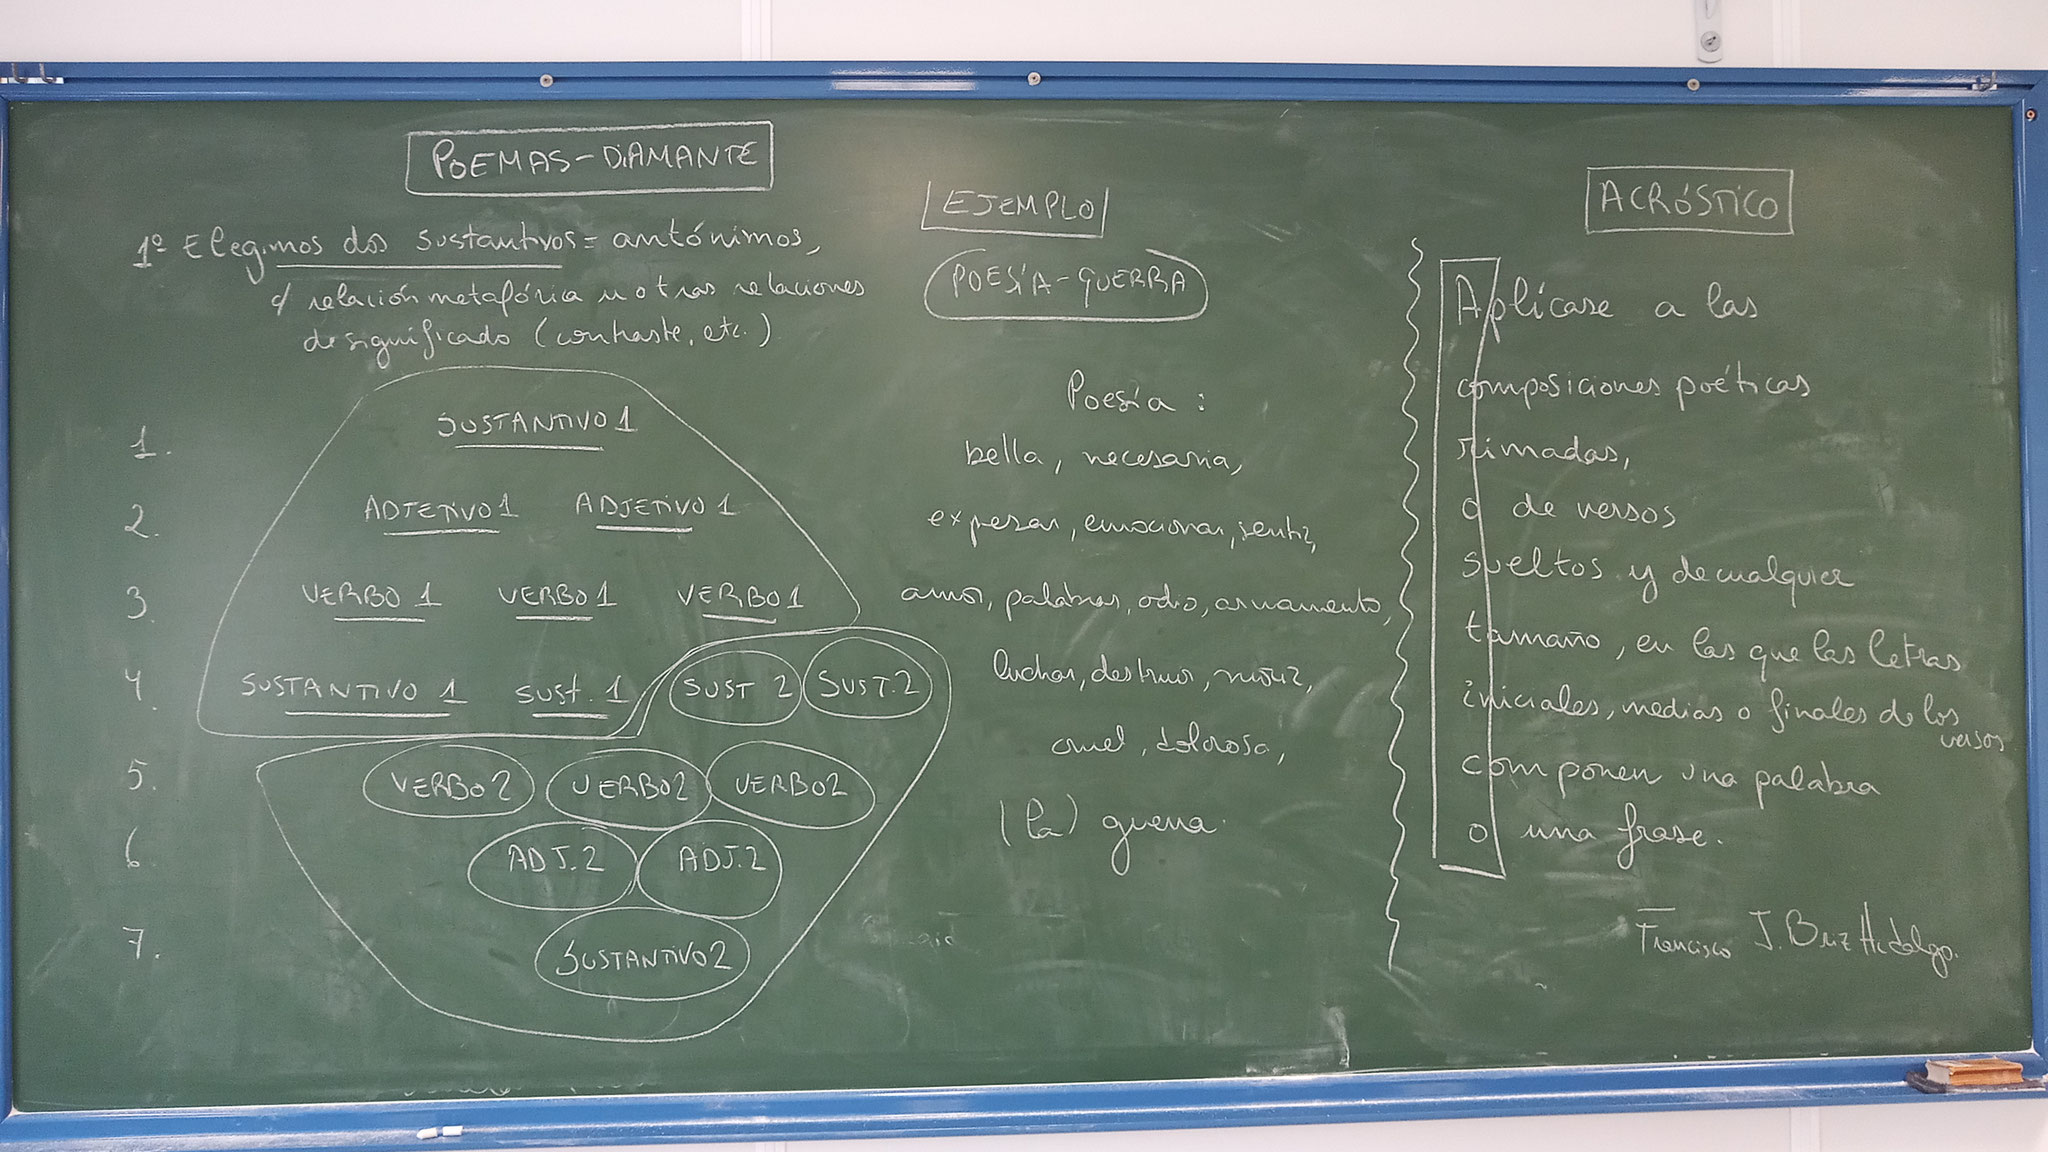 POEMAS-DIAMANTE
1º Elegimos dos sustantivos = antónimos,
c/ relación metafórica u otras relaciones
de significado (contraste, etc.)
1. SUSTANTIVO 1
2. ADJETIVO 1 ADJETIVO 1
3. VERBO 1 VERBO 1 VERBO 1
4. SUSTANTIVO 1 SUST. 1 SUST 2 SUST. 2
5. VERBO 2 VERBO 2 VERBO 2
6. ADJ. 2 ADJ. 2
7. SUSTANTIVO 2
EJEMPLO
POESÍA-GUERRA
Poesía :
bella, necesaria,
expresar, emocionar, sentir,
amor, palabras, odio, armamento,
luchar, destruir, morir,
cruel, dolorosa,
(la) guerra.
ACRÓSTICO
Aplícase a las
composiciones poéticas
rimadas,
o de versos
sueltos y de cualquier
tamaño, en las que las letras
iniciales, medias o finales de los
versos
componen una palabra
o una frase.
Francisco J. Briz Hidalgo.